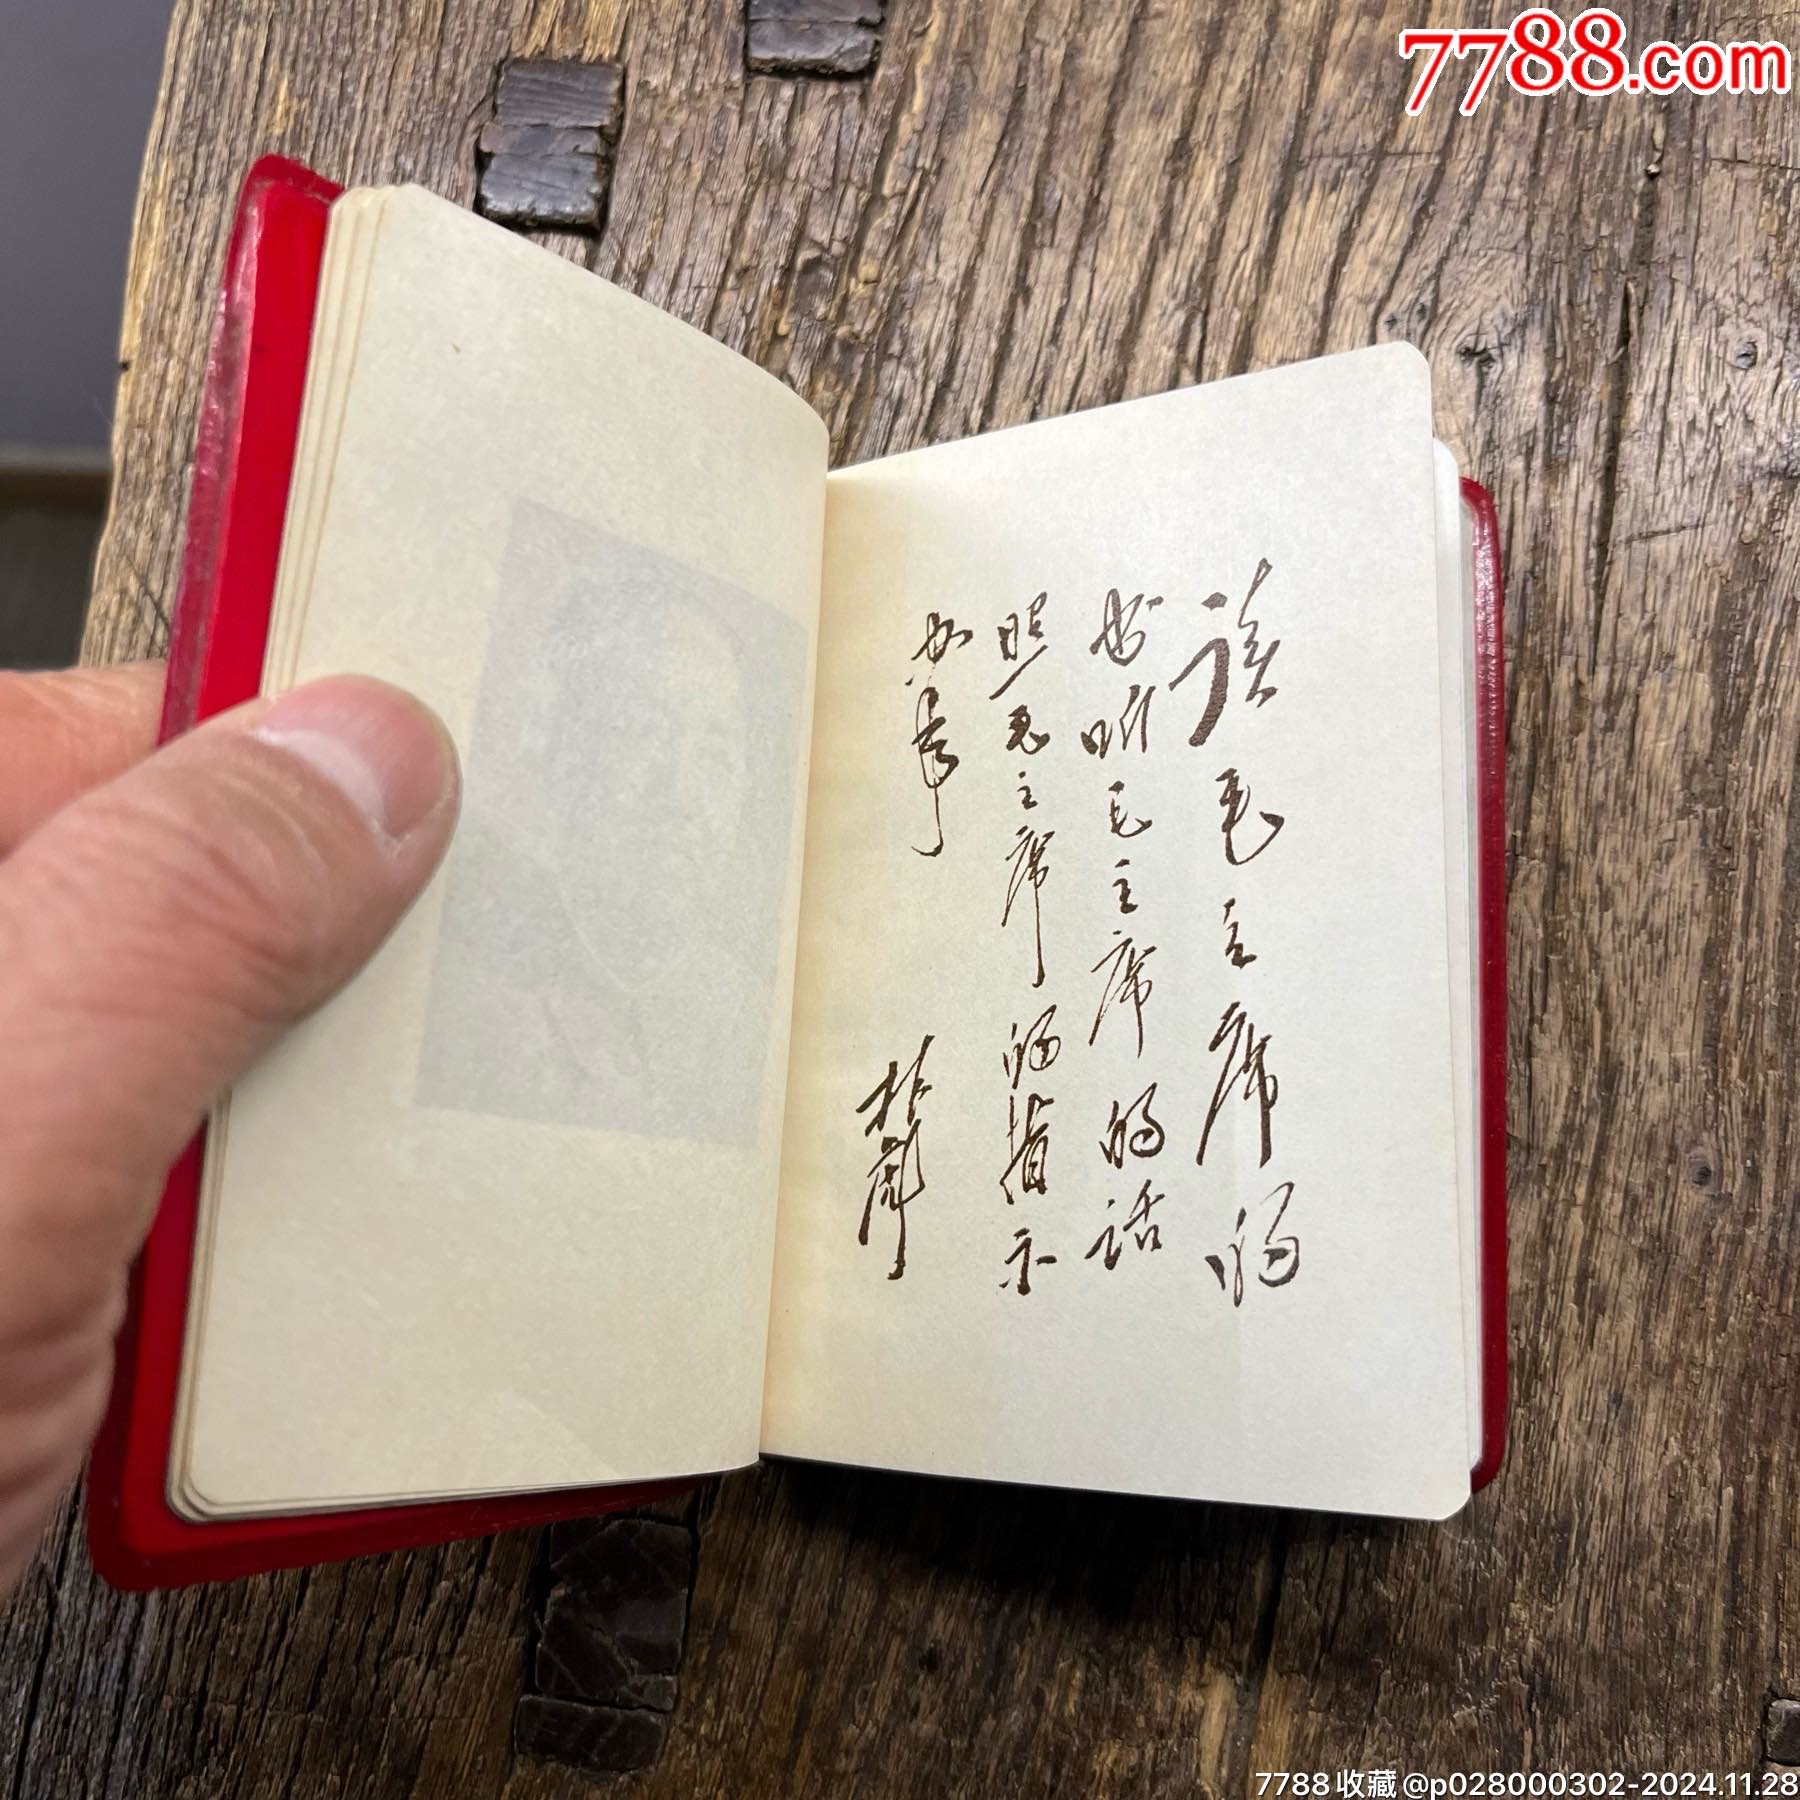 7788.com
读毛主席的
书听毛主席的话
照毛主席的指示
办事
林彪
7788收藏@p028000302-2024.11.28